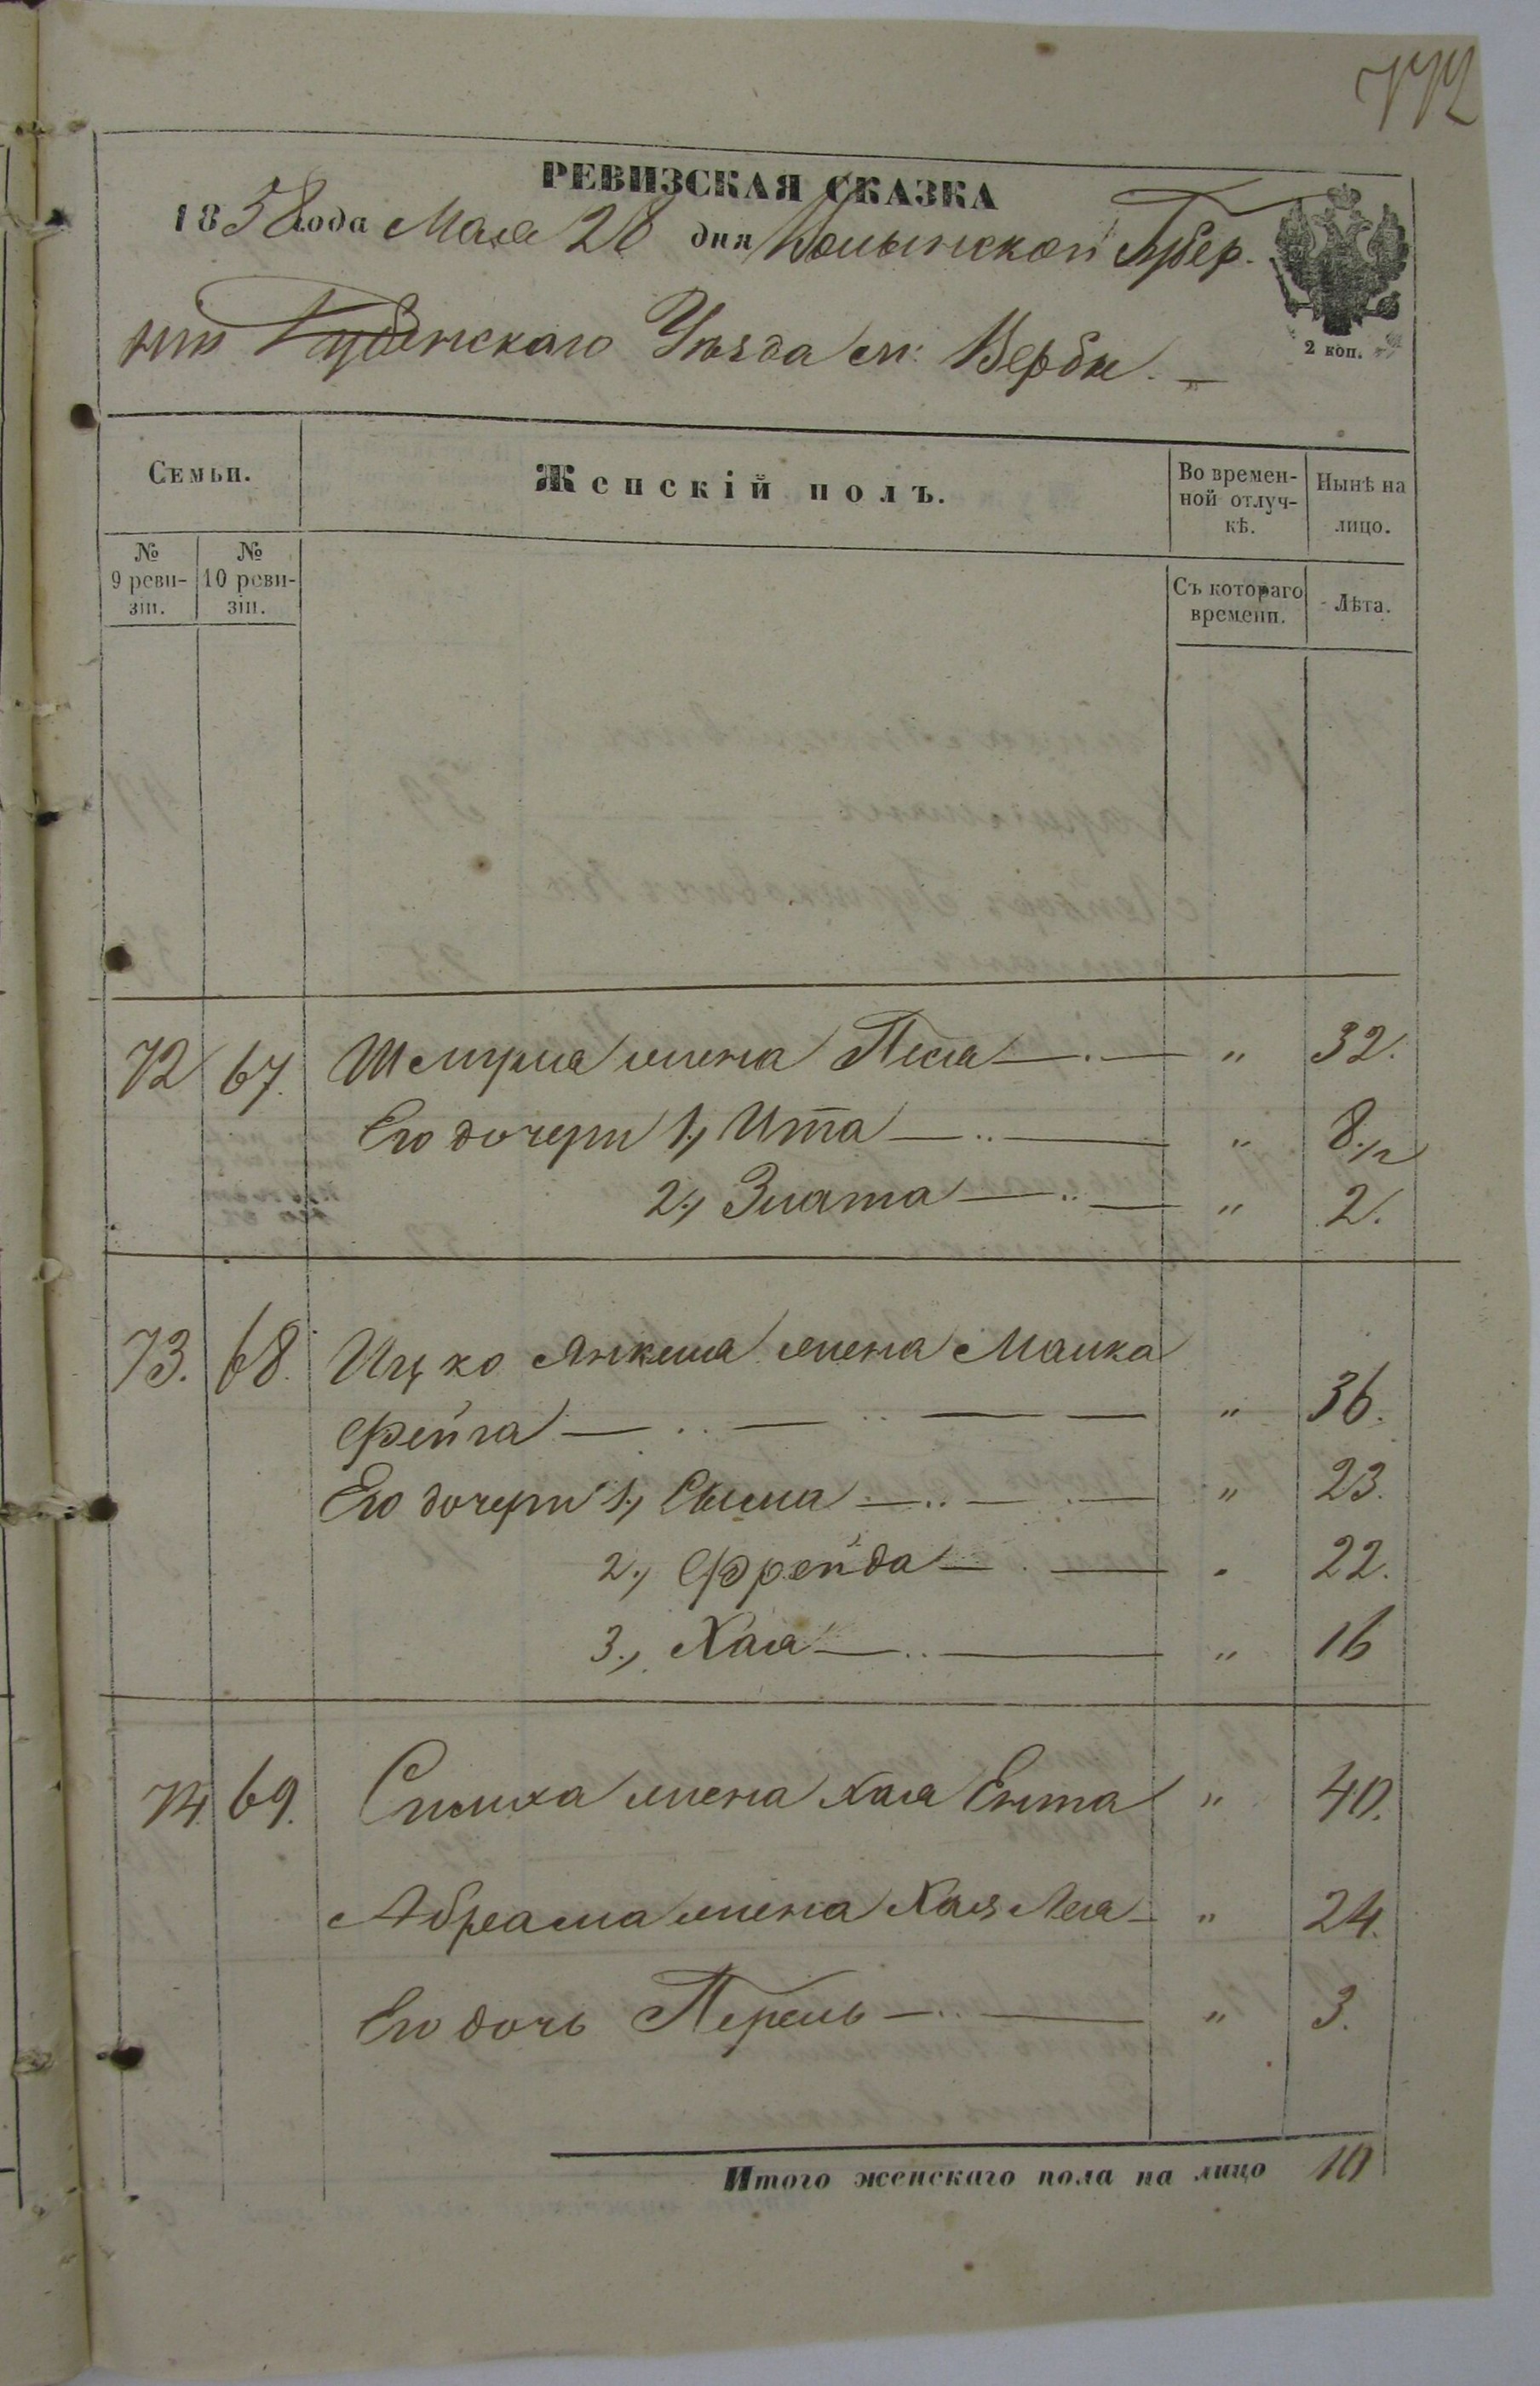 772
РЕВИЗСКАЯ СКАЗКА
1858 года Мая 28 дня Волынской Губер-
ніи Дубенскаго Уѣзда м: Вербы. —
2 коп.
Семьи.
Женскій полъ.
Во времен-
ной отлуч-
кѣ.
Нынѣ на
лицо.
№
9 реви-
зіи.
№
10 реви-
зіи.
Съ котораго
времени.
Лѣта.
72 67. жена Песя — . — " 32.
Его дочери 1., Ита — .. — " 8 1/2
2., Злата — .. — " 2.
73. 68. Ицко Янкеля жена Малка
Фейга — .. — .. — — " 36.
Его дочери 1., Сыма — .. — . — " 23.
2., Фрейда — . — " 22.
3., Хая — .. — " 16
74. 69. Симха жена Хая Ента " 40.
Абрама жена Хая Лея — " 24.
Его дочь Перель — .. — " 3.
Итого женскаго пола на лицо 10